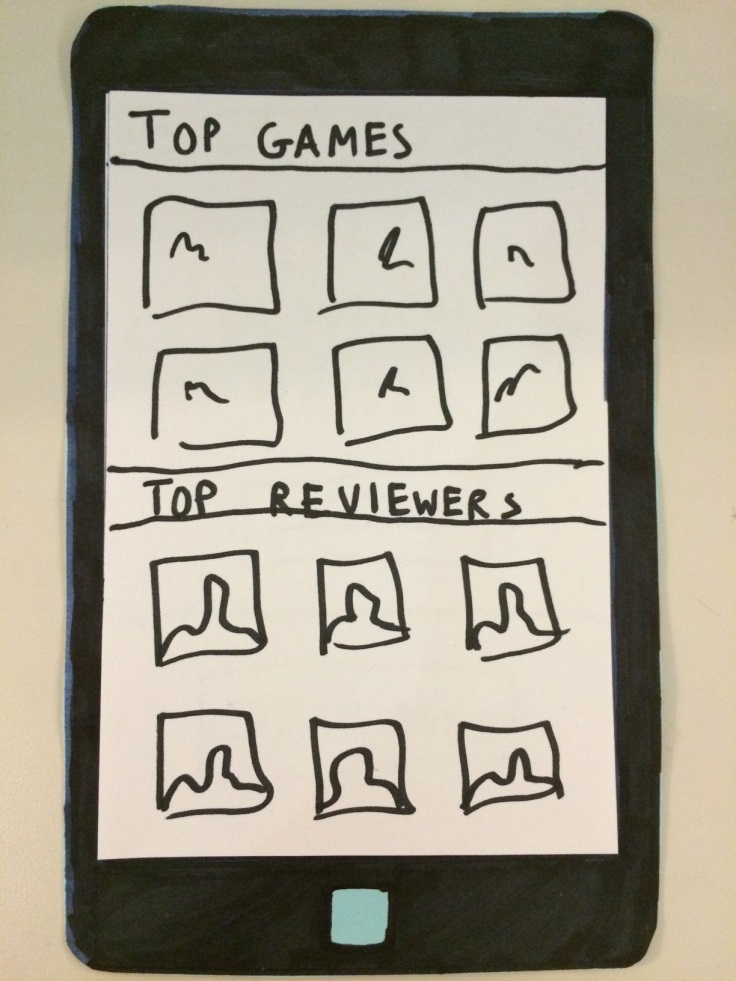 TOP GAMES
TOP REVIEWERS